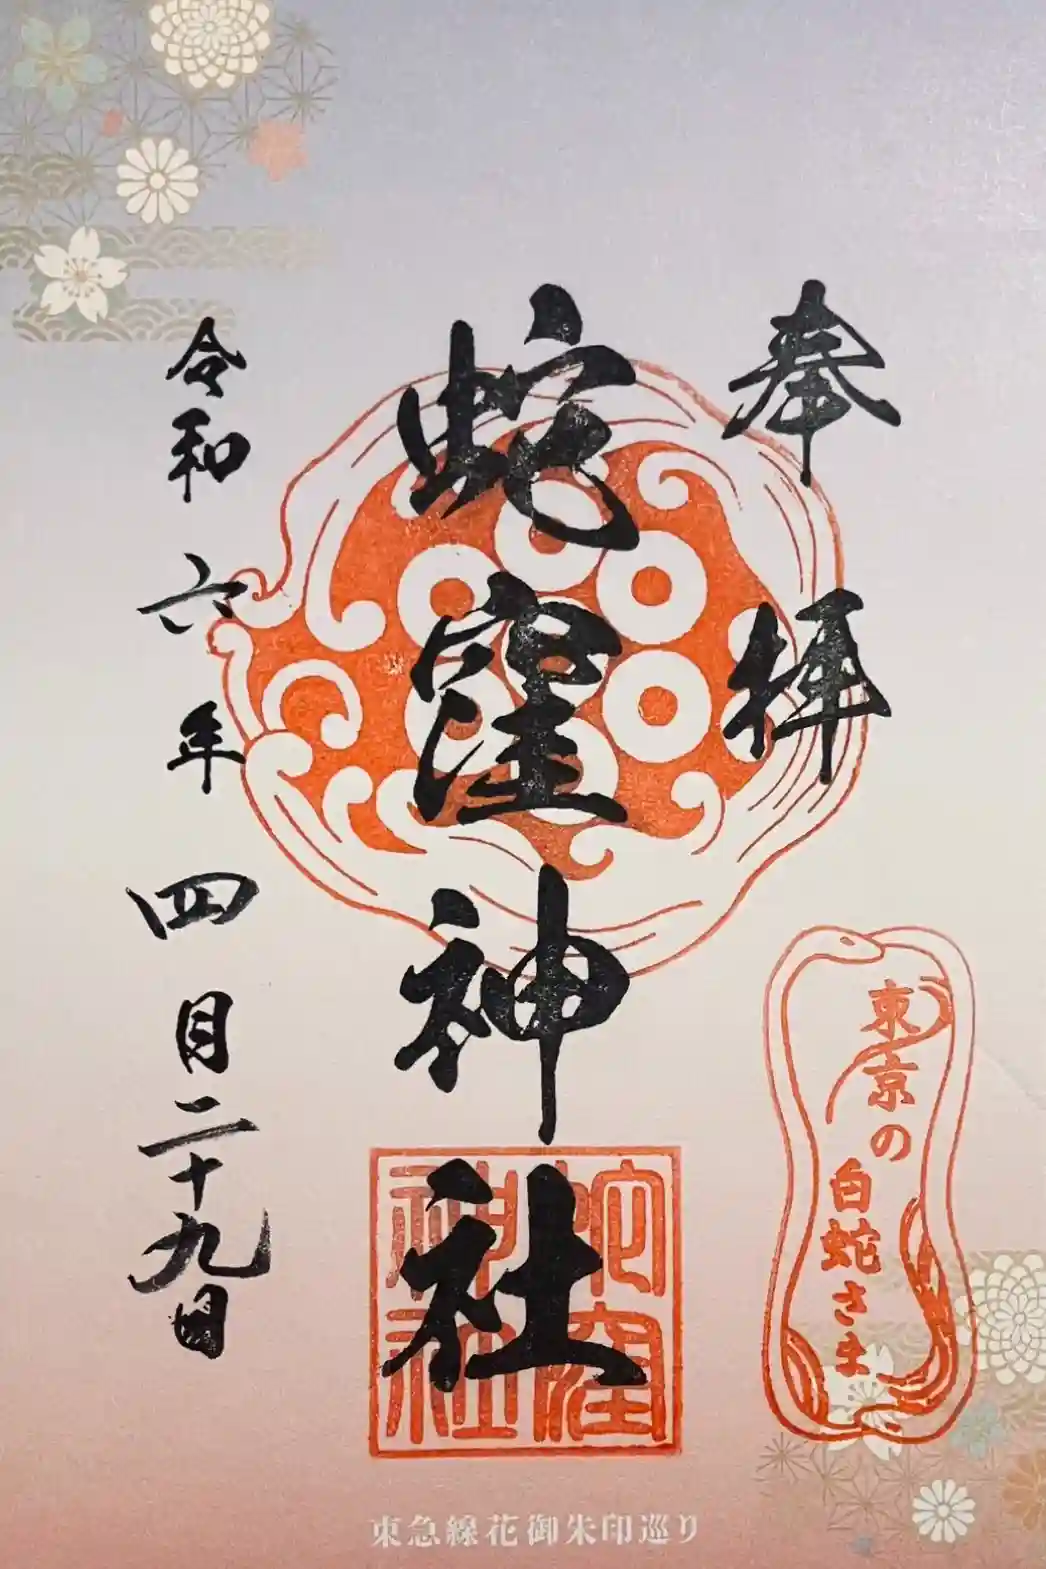 奉拝
蛇窪神社
令和六年四月二十九日
東京の
白蛇さま
蛇窪
神社
東急線花御朱印巡り